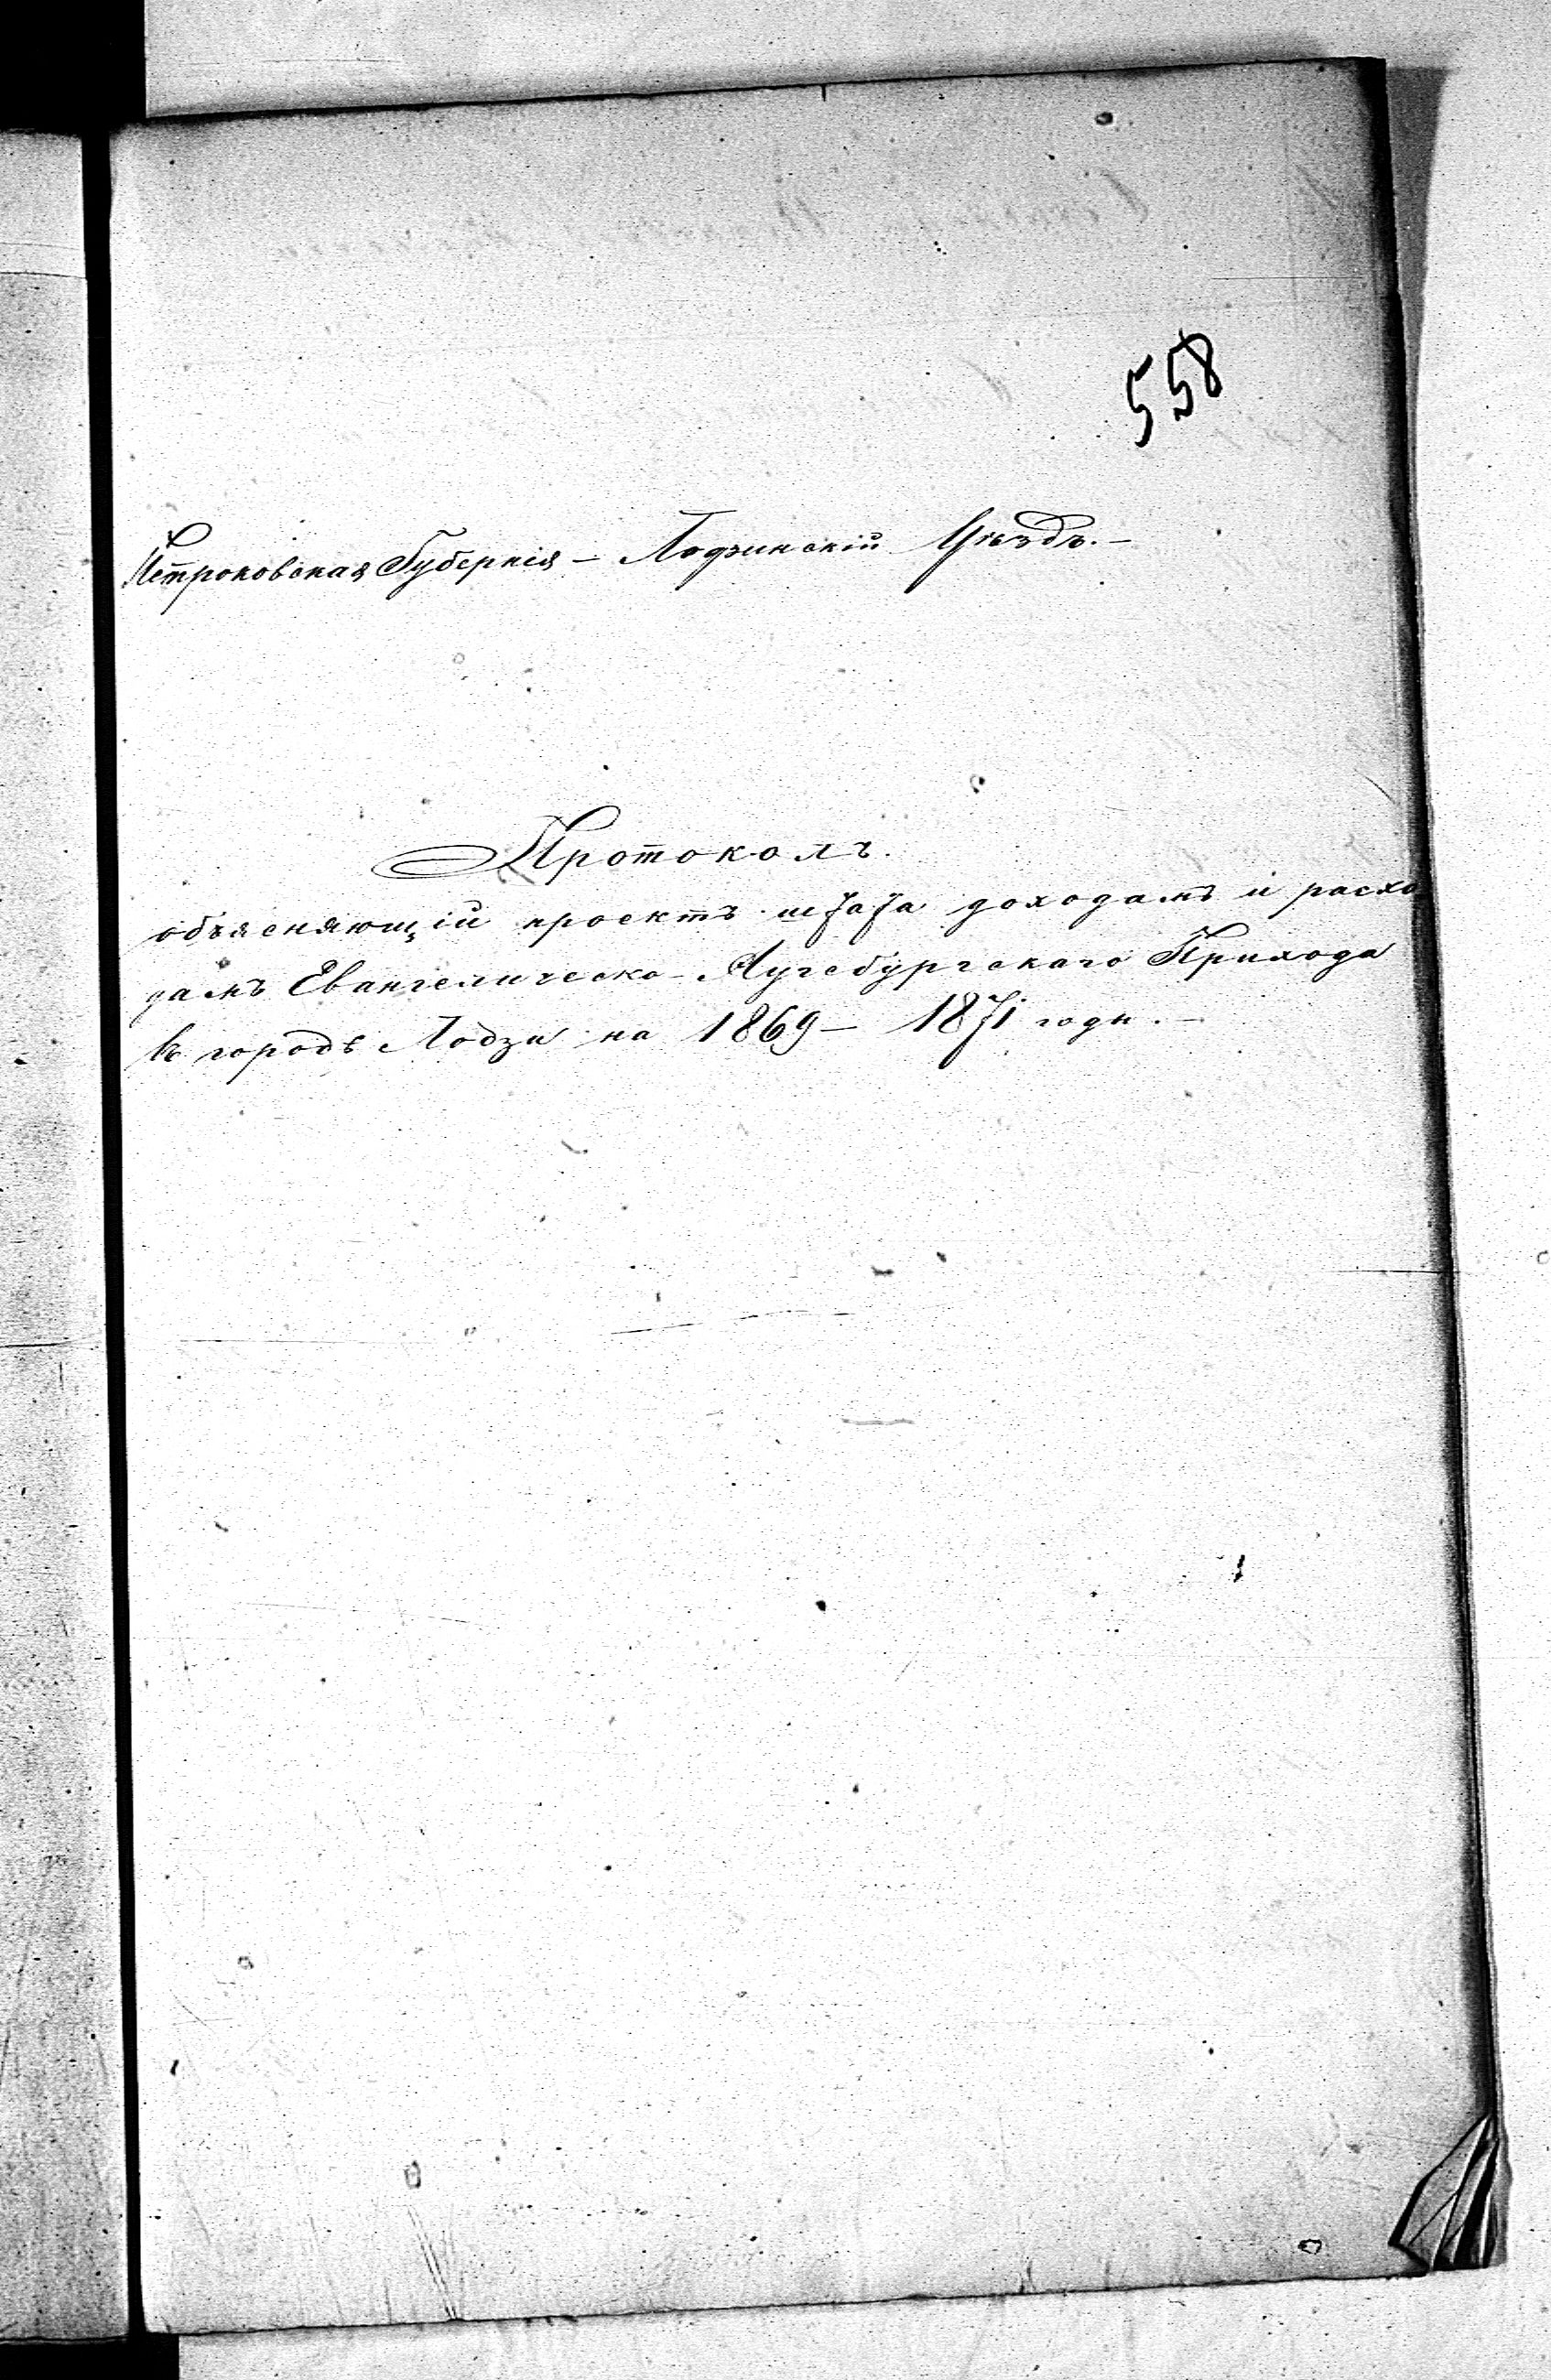 558
Петроковская Губернія – Лодзинскій Уѣздъ. –
Протоколъ
объясняющій проектъ штата доходамъ и расхо
дамъ Евангелическо-Аугсбургскаго Прихода
въ городѣ Лодзи на 1869 – 1871 годы. –